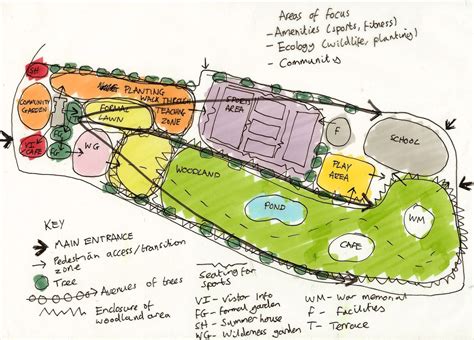 Areas of focus
- Amenities (sports, fitness)
- Ecology (wildlife, planting)
- Community
SH
PLANTING
WALK THROUGH
COMMUNITY
GARDEN
FORMAL
LAWN
TEACHING
ZONE
SPORTS
AREA
T
FG
VI
CAFE
WG
F
SCHOOL
PLAY
AREA
WOODLAND
POND
WM
CAFE
KEY
MAIN ENTRANCE
Pedestrian access/transition
zone
Tree
Avenues of trees
Enclosure of
woodland area
Seating for
sports
VI - Visitor Info
FG - formal garden
SH - Summerhouse
WG - Wilderness garden
WM - War memorial
F - facilities
T - Terrace